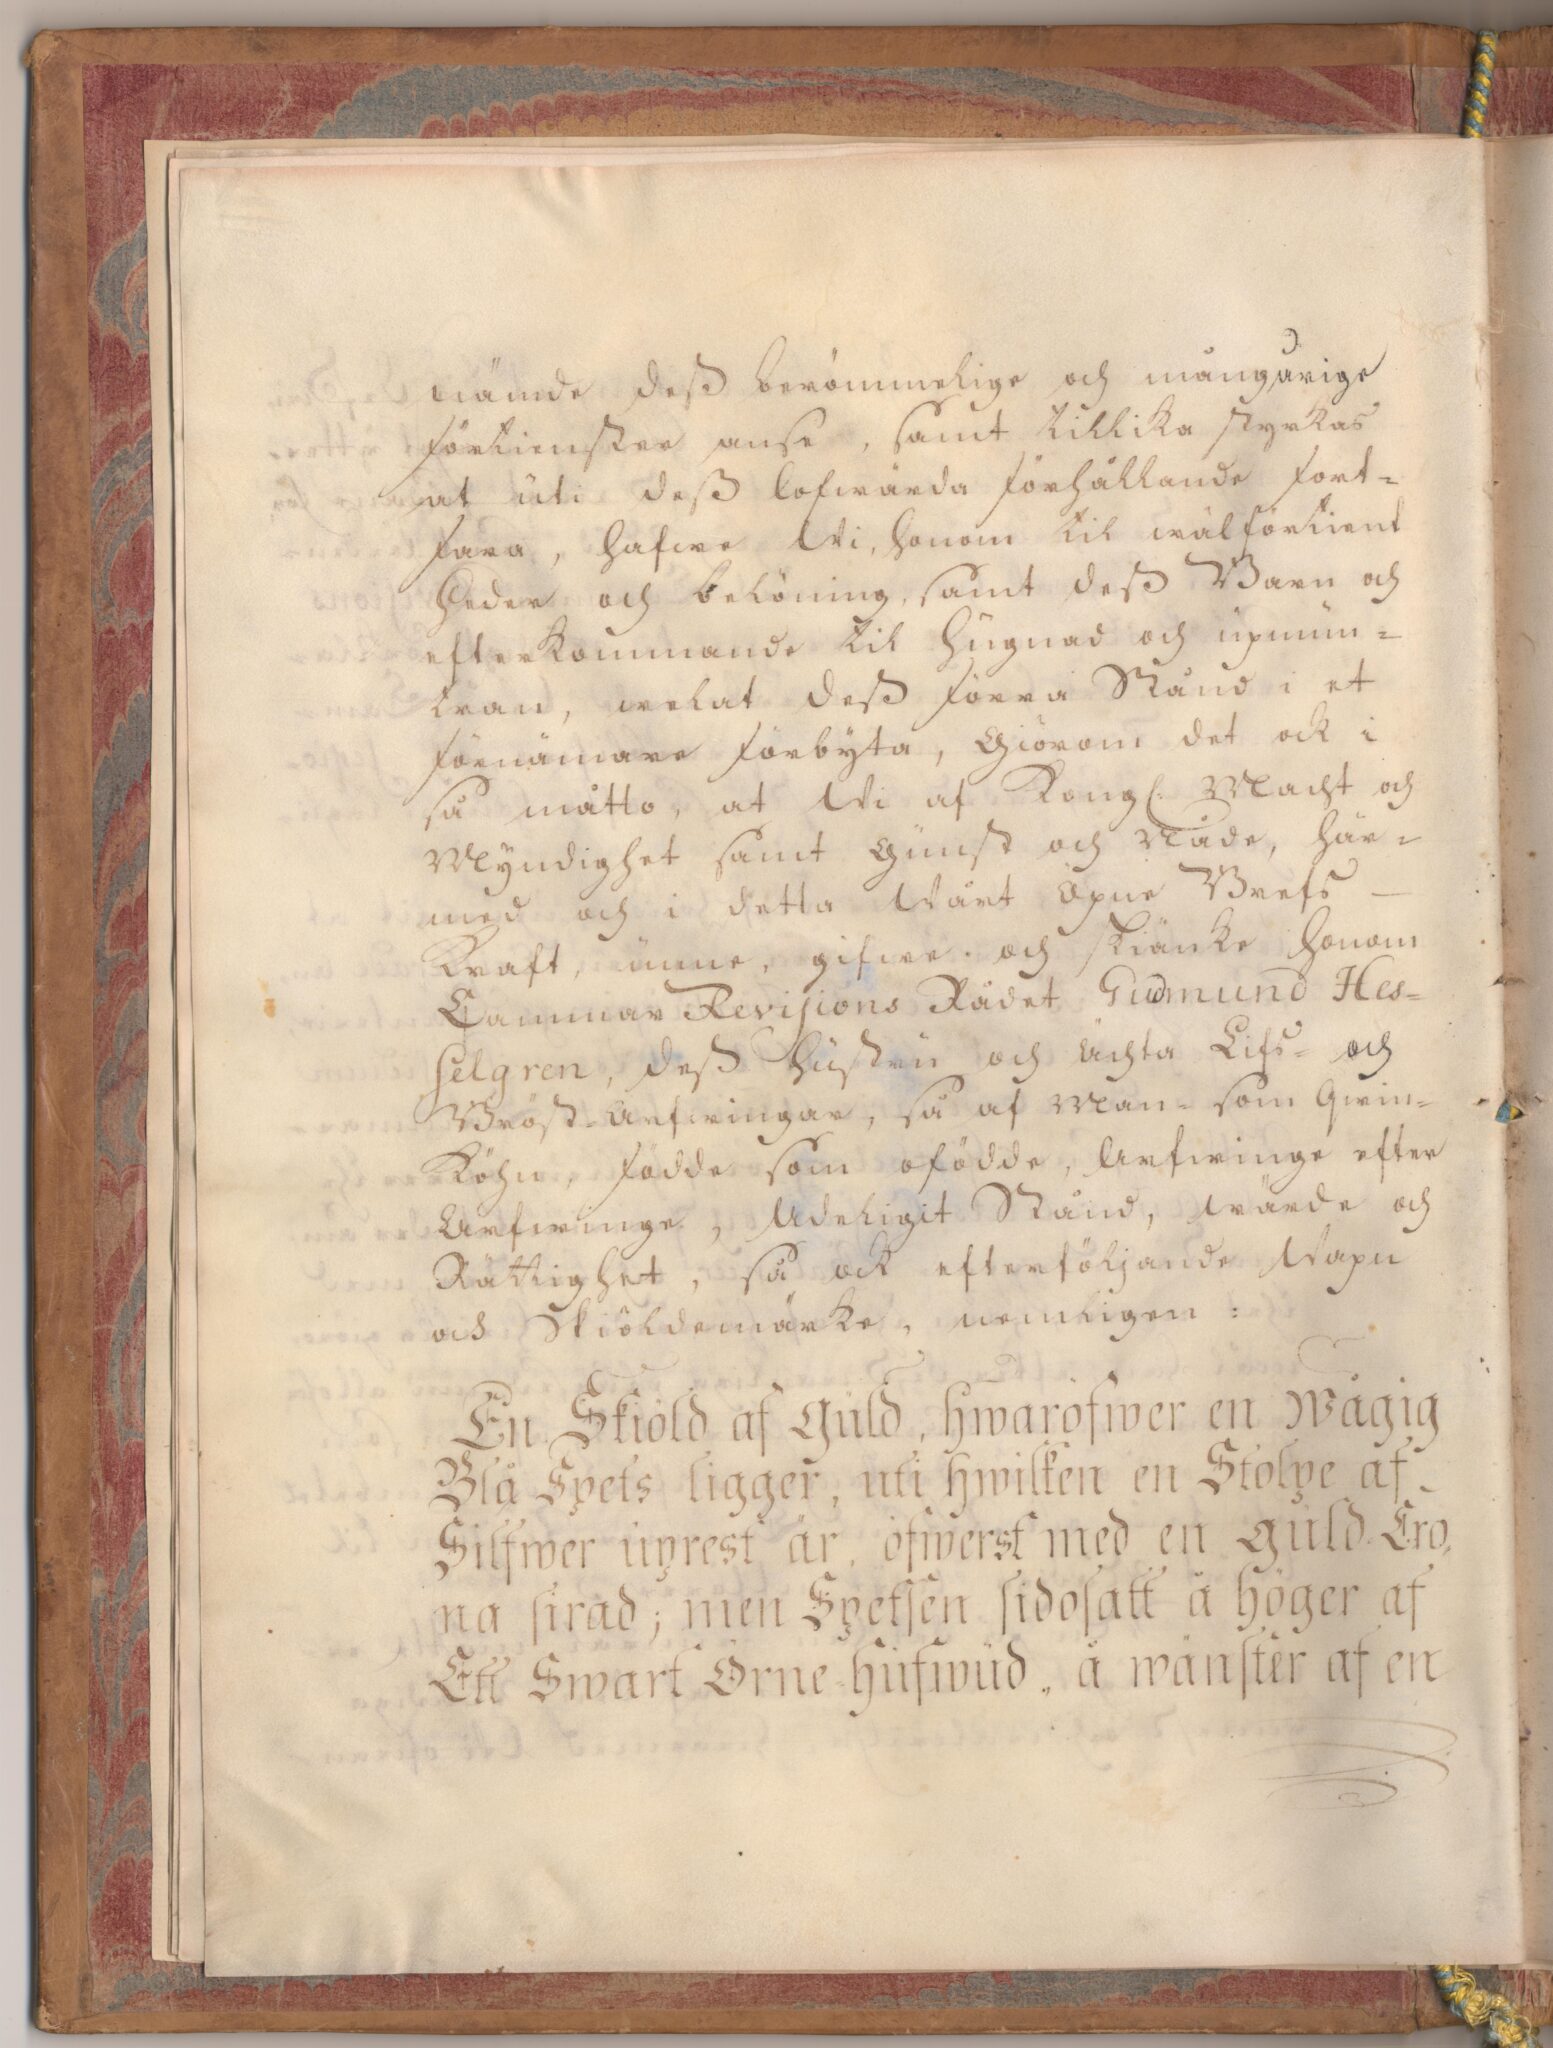 nämde deß berömmelige och mångårige
förtienster anse, samt tillika styrkas
at uti deß lofwärda förhållande fort-
fara, hafwe Wi, honom til wälförtient
Heder och belöning, samt deß Barn och
efterkommande til hugnad och upmun-
tran, welat deß förra Stånd i et
förnämare förbyta, Giörom det ock i
så måtto, at Wi af Kongl. Macht och
Myndighet samt Gunst och Nåde, här-
med och i detta Wårt Öpne Brefs
Kraft, unne, gifwe och skiänke honom
Cammar Revisions Rådet Gudmund Hes-
selgren, deß hustru och ächta Lifs- och
Bröst-Arfwingar, så af Man- som Qwin-
Köhn, födde som ofödde, Arfwinge efter
Arfwinge, Adeligit Stånd, wärde och
Rättighet, så ock efterföljande Wapn
och Skiöldemärke, nemligen:
En Skiöld af Guld, hwaröfwer en Wågig
Blå Spets ligger, uti hwilken en Stolpe af
Silfwer uprest är, öfwerst med en Guld Cro-
na sirad; men Spetsen sidosatt å höger af
Ett Swart Örne-hufwud, å wänster af en